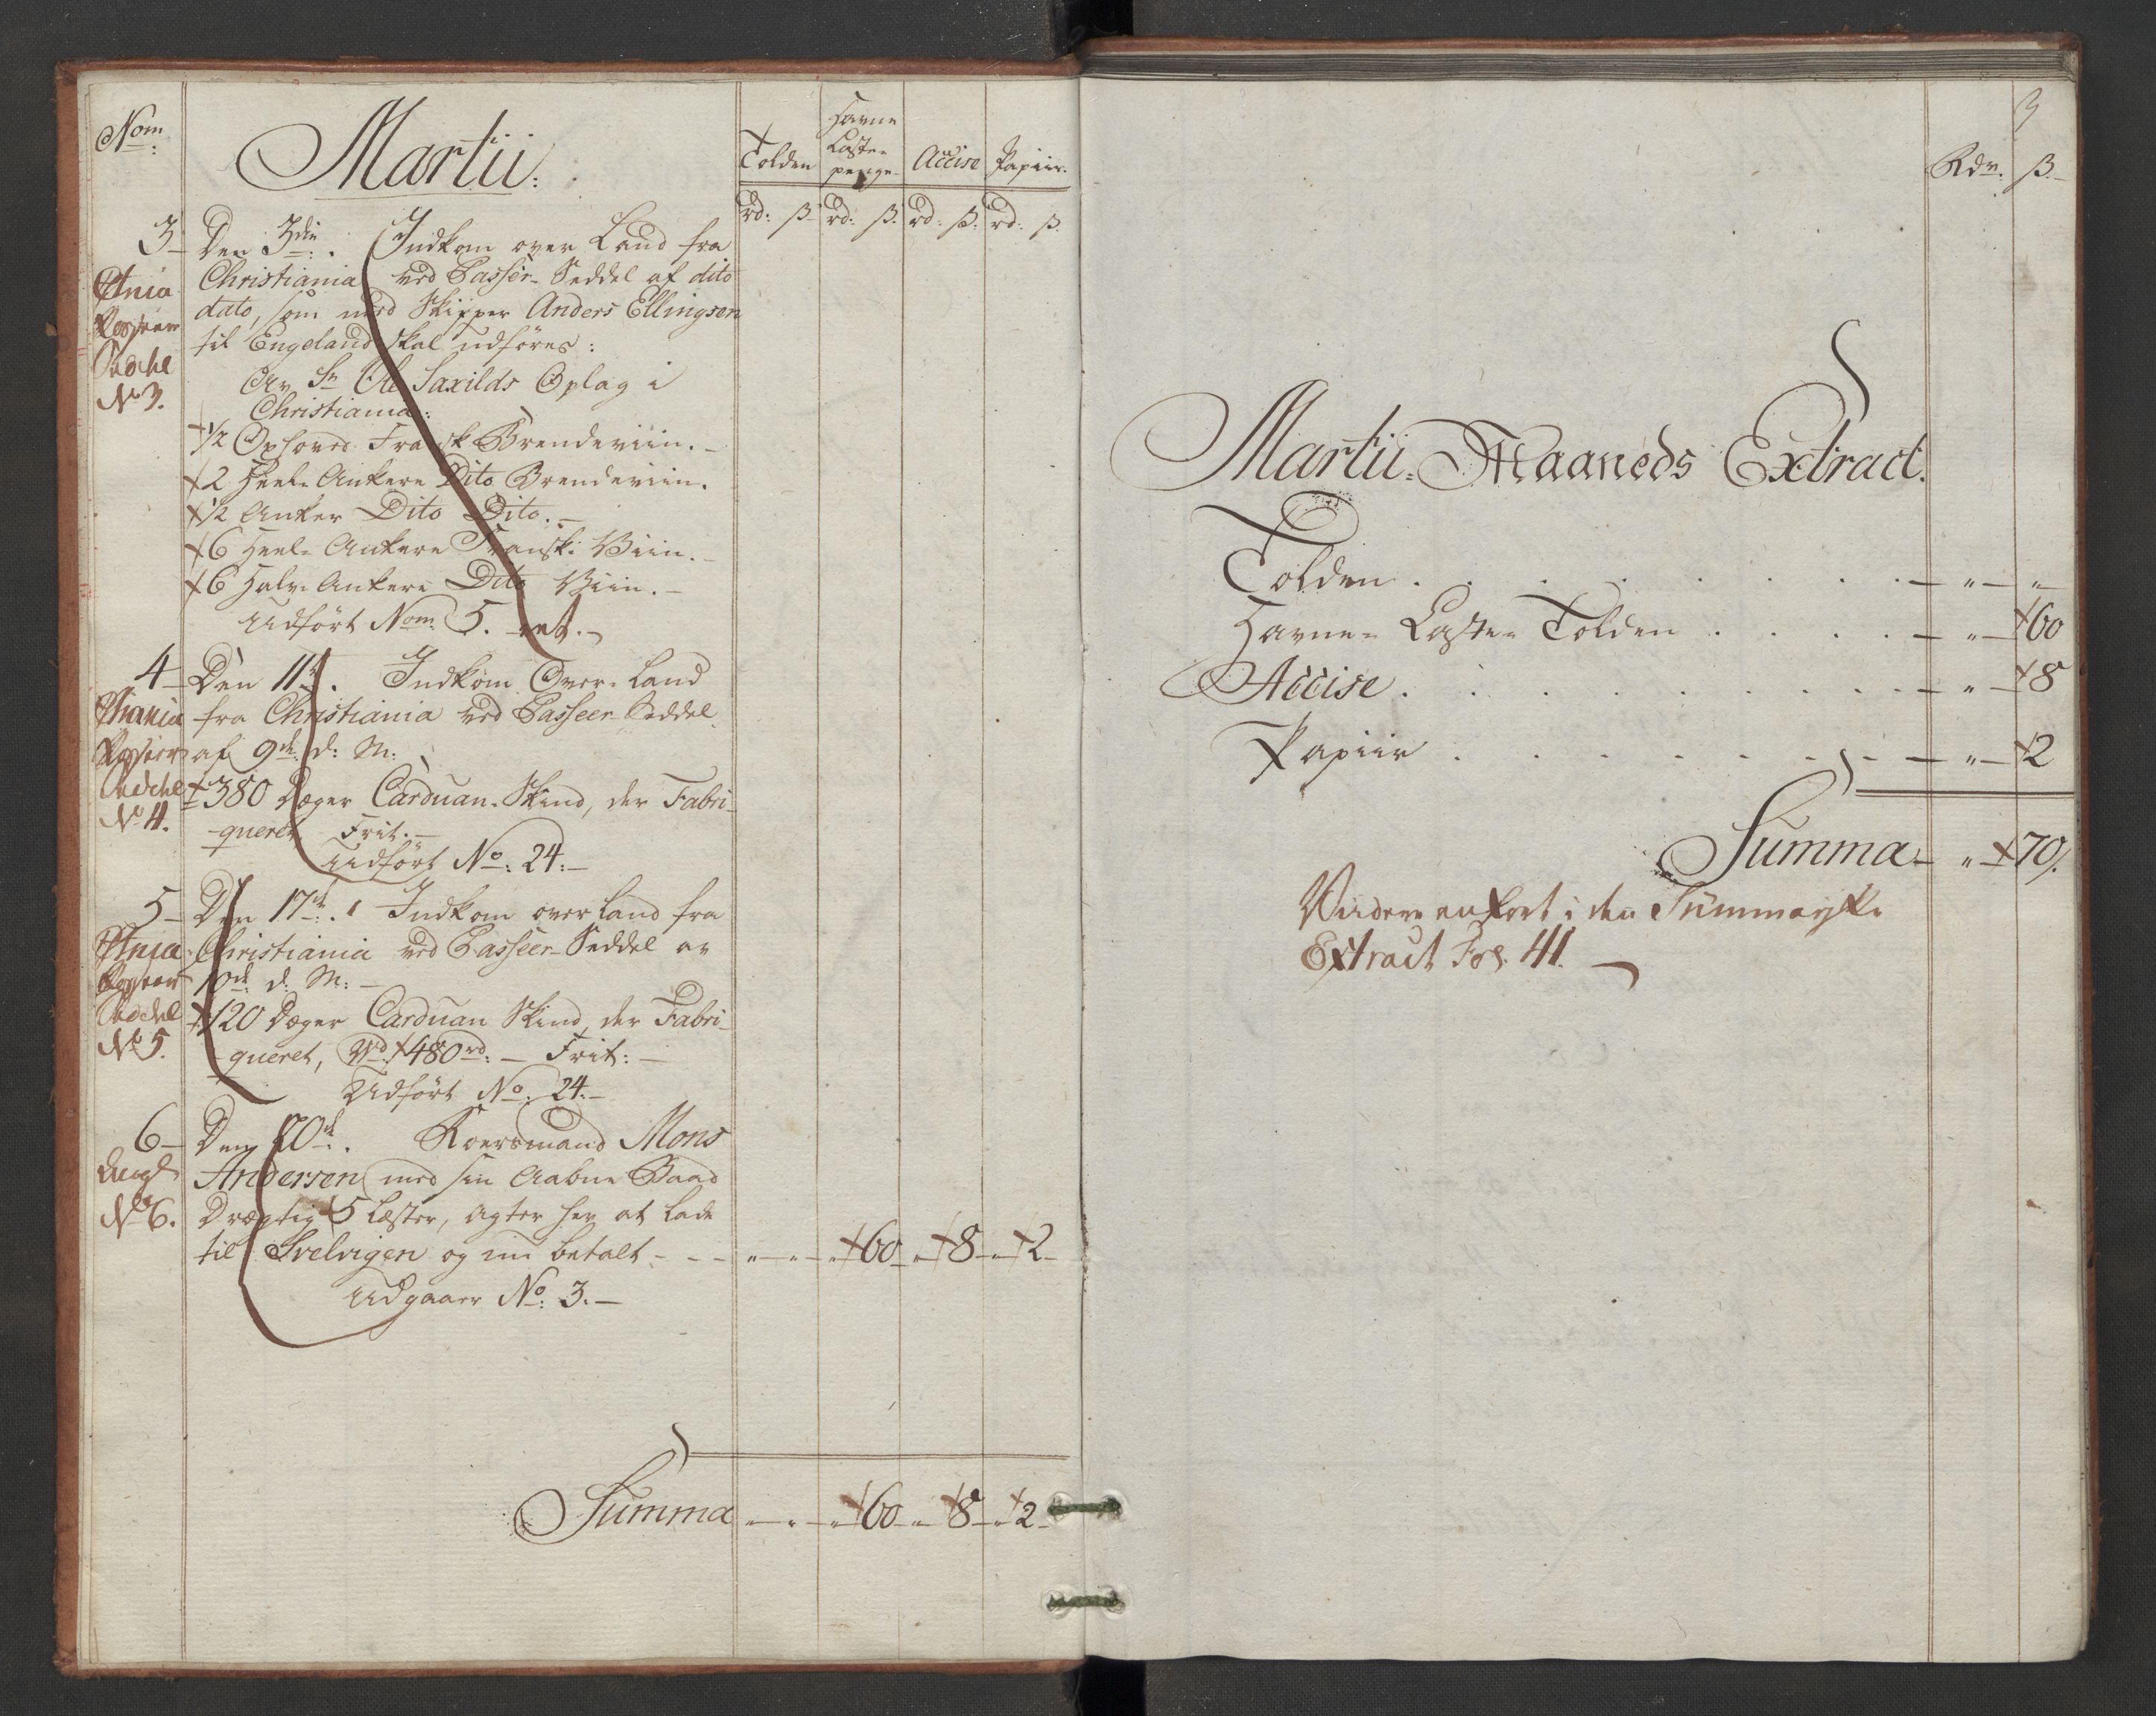 Nom:
Martii:
Tolden
Havne
Laste-
penge-
Accise
Papiir.
rd: ß. rd: ß. rd: ß. rd: ß.
3 Den 3die: Indkom over Land fra
Christiania ved Passeer-Seddel af dito
dato, som med Skipper Anders Ellingsen
til Engeland skal udföres:
Av Sr Ole Saxilds Oplag i
Christiania:
1/2 Oxhoved Fransk Brendeviin.
2 Heele Ankere Dito Brendeviin.
1/2 Anker Dito Dito.
6 Heele Ankere Fransk Viin.
6 Halve Ankere Dito Viin.
Udfört Nom 5.
Xstnia
Passeer
Sedle
No 3.
4 Den 11te. Indkom Over Land
fra Christiania ved Passeer Seddel
af 9de d: M:
380 Deger Carduan-Skind, der Fabri-
queret Frit.
Udfört No: 24:
Passeer
Sedle
No 4.
5 Den 17de. Indkom over Land fra
Christiania ved Passeer-Seddel av
10de d: M:
120 Deger Carduan Skind, der Fabri-
queret, Vd. 480rd: Frit:
Udfört No: 24.
Xstnia
Passeer
Sedle
No 5.
6 Den 20de. Koersmand Mons
Andersen med sin Aabne Baad
Drægtig 5 Læster, agter her at lade
til Svelvigen og nu betalt - - - " " " 60 " 8 " 2
Udgaaer No: 3.
Angl
No 6.
Summa " " " 60 " 8 " 2
3
Rdr. ß.
Martii Maaneds Extract.
Tolden . . . . " "
Havne- Laste- Tolden . . . . " 60
Accise . . . . " 8
Papiir . . . . " 2
Summa " 70
Videre anfört i den Summariske
Extract Fol. 41.